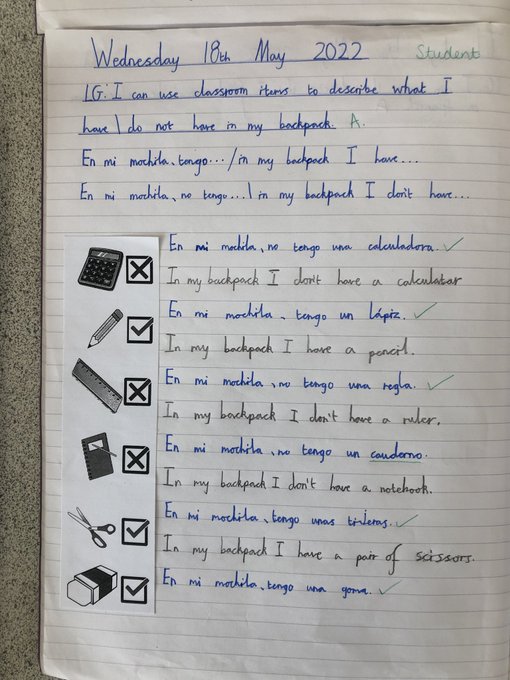 Wednesday 18th May 2022 Student
LG: I can use classroom items to describe what I
have \ do not have in my backpack. A.
En mi mochila, tengo... / in my backpack I have...
En mi mochila, no tengo... \ in my backpack I don't have...
En mi mochila, no tengo una calculadora.
In my backpack I don't have a calculator
En mi mochila, tengo un lápiz.
In my backpack I have a pencil.
En mi mochila, no tengo una regla.
In my backpack I don't have a ruler.
En mi mochila, no tengo un cauderno.
In my backpack I don't have a notebook.
En mi mochila, tengo unas tijeras.
In my backpack I have a pair of scissors.
En mi mochila, tengo una goma.